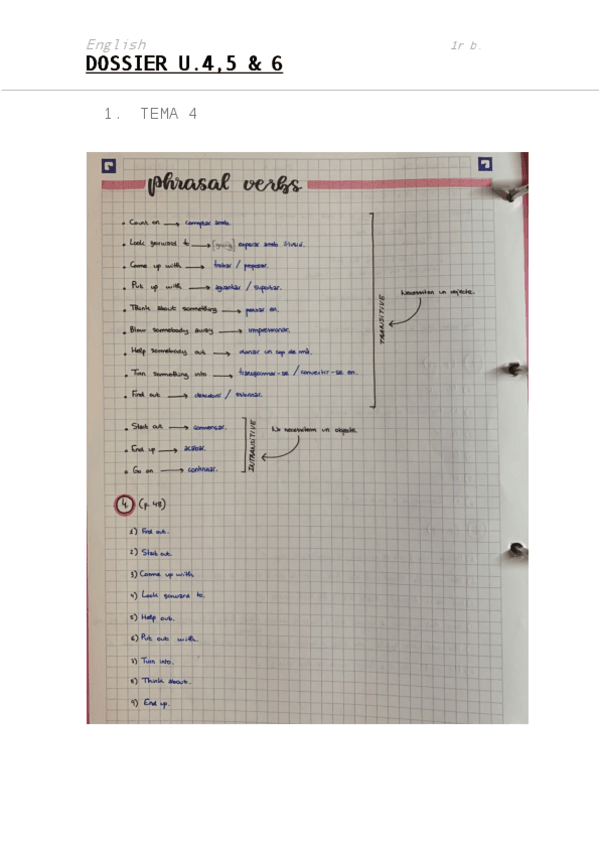 English 1r b.
DOSSIER U.4,5 & 6
1. TEMA 4
phrasal verbs
Count on → comptar amb.
Look forward to → (going) esperar amb il·lusió.
Come up with → trobar / proposar.
Put up with → aguantar / suportar.
Think about something → pensar en.
Blow somebody away → impressionar.
Help somebody out → donar un cop de mà.
Turn something into → transformar-se / convertir-se en.
Find out → descobrir /
TRANSITIVE
Necessiten un objecte.
Start out → començar.
End up → acabar.
Go on → continuar.
INTRANSITIVE
No necessitem un objecte.
4. (p. 48)
1) Find out.
2) Start out.
3) Come up with.
4) Look forward to.
5) Help out.
6) Put out with.
7) Turn into.
8) Think about.
9) End up.